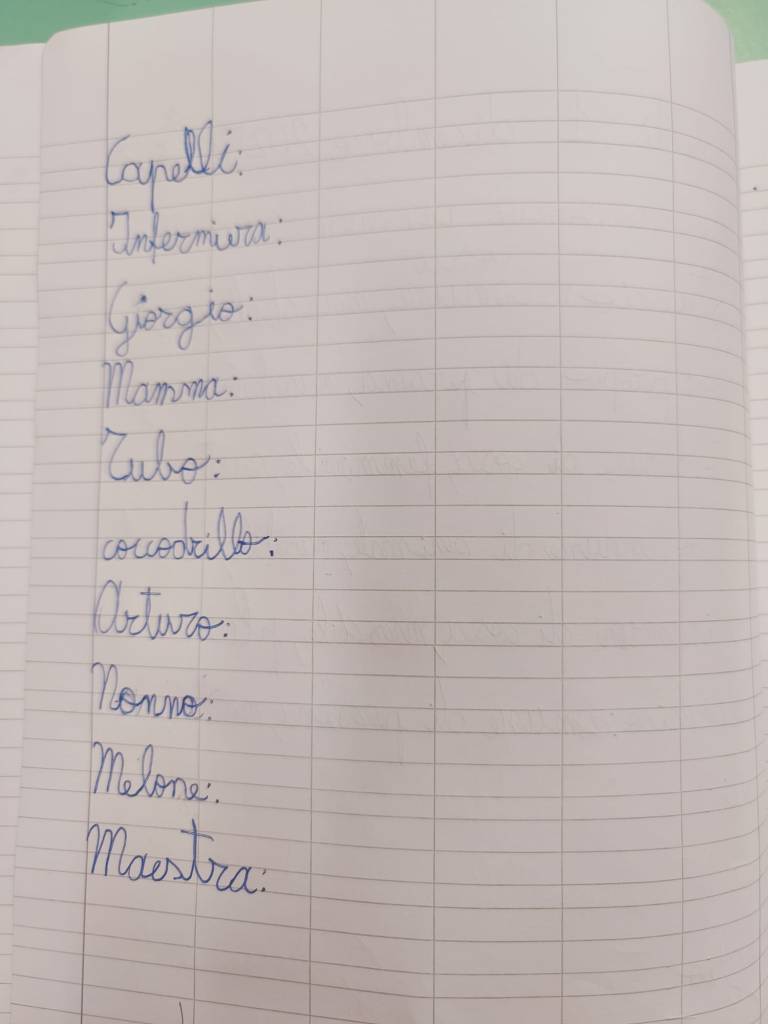 Capelli:
Infermiera:
Giorgio:
Mamma:
Tubo:
coccodrillo:
Arturo:
Nonno:
Melone:
Maestra: